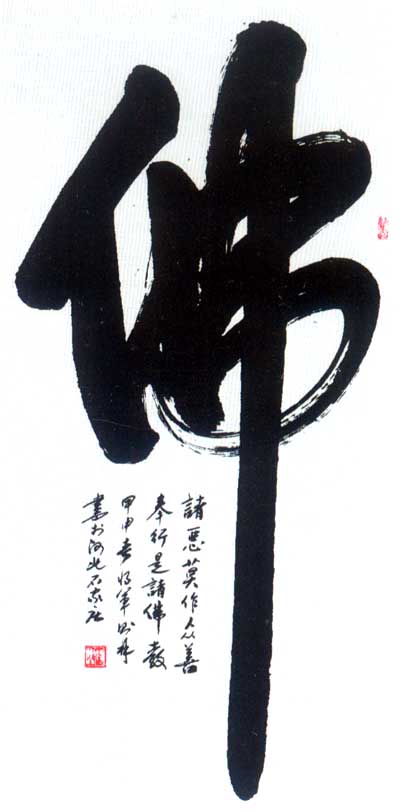 佛
諸惡莫作众善
奉行是諸佛教
甲申春将军
書於河北石家庄